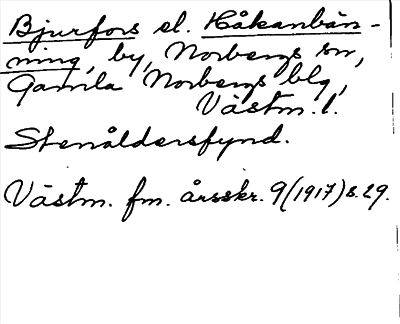 Bjurfors el. Håkanbän-
ning, by, Norbergs sn,
Gamla Norbergs blg,
Västm. l.
Stenåldersfynd.
Västm. fm. årsskr. 9 (1917) s. 29.